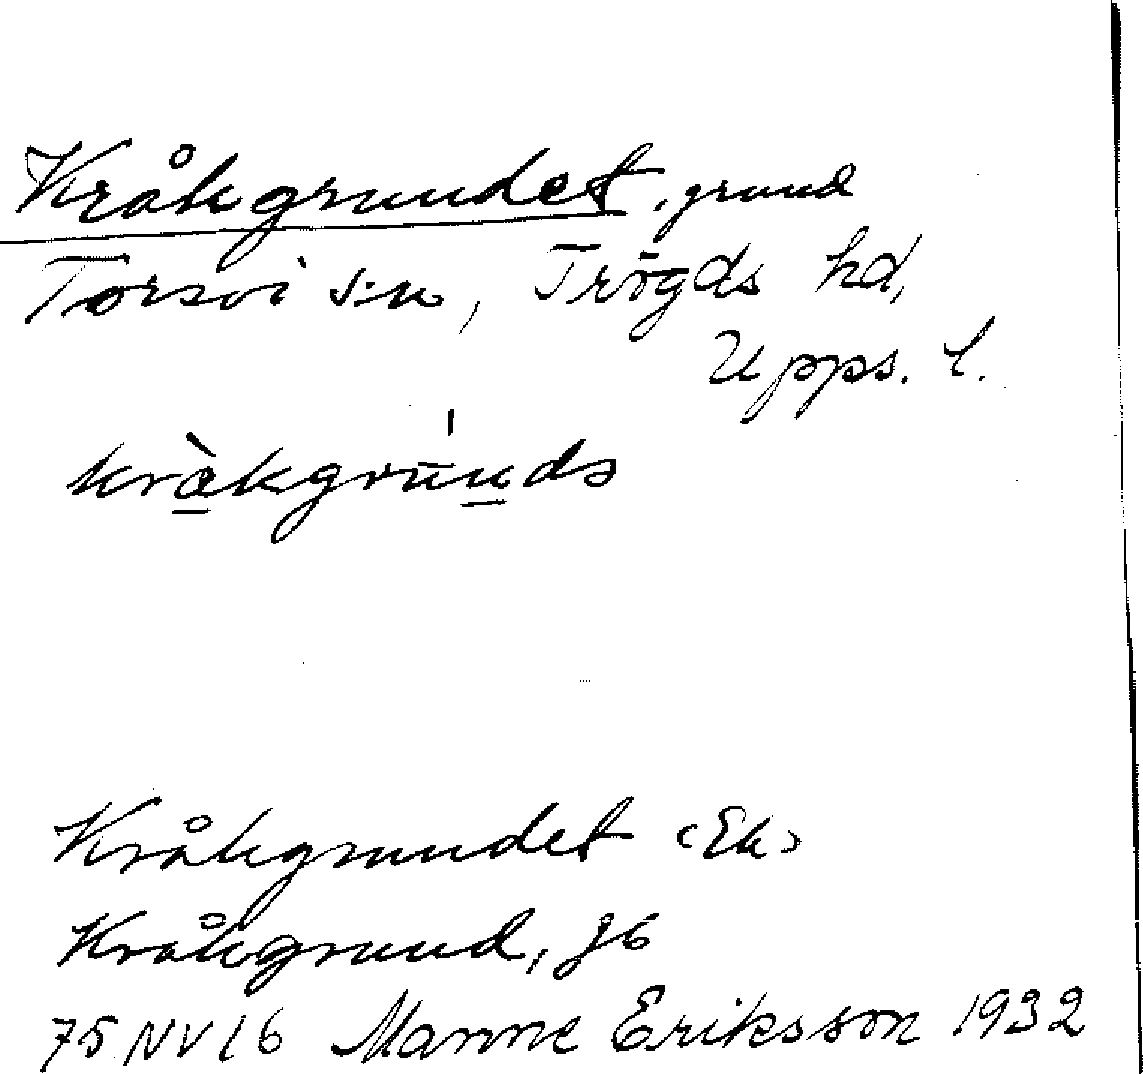 Kråkgrundet, grund
Torsvi s:n, Trögds hd,
Upps. l.
kràkgrúnds
Kråkgrundet (Ek)
Kråkgrund, J6
75 NV 16 Manne Eriksson 1932